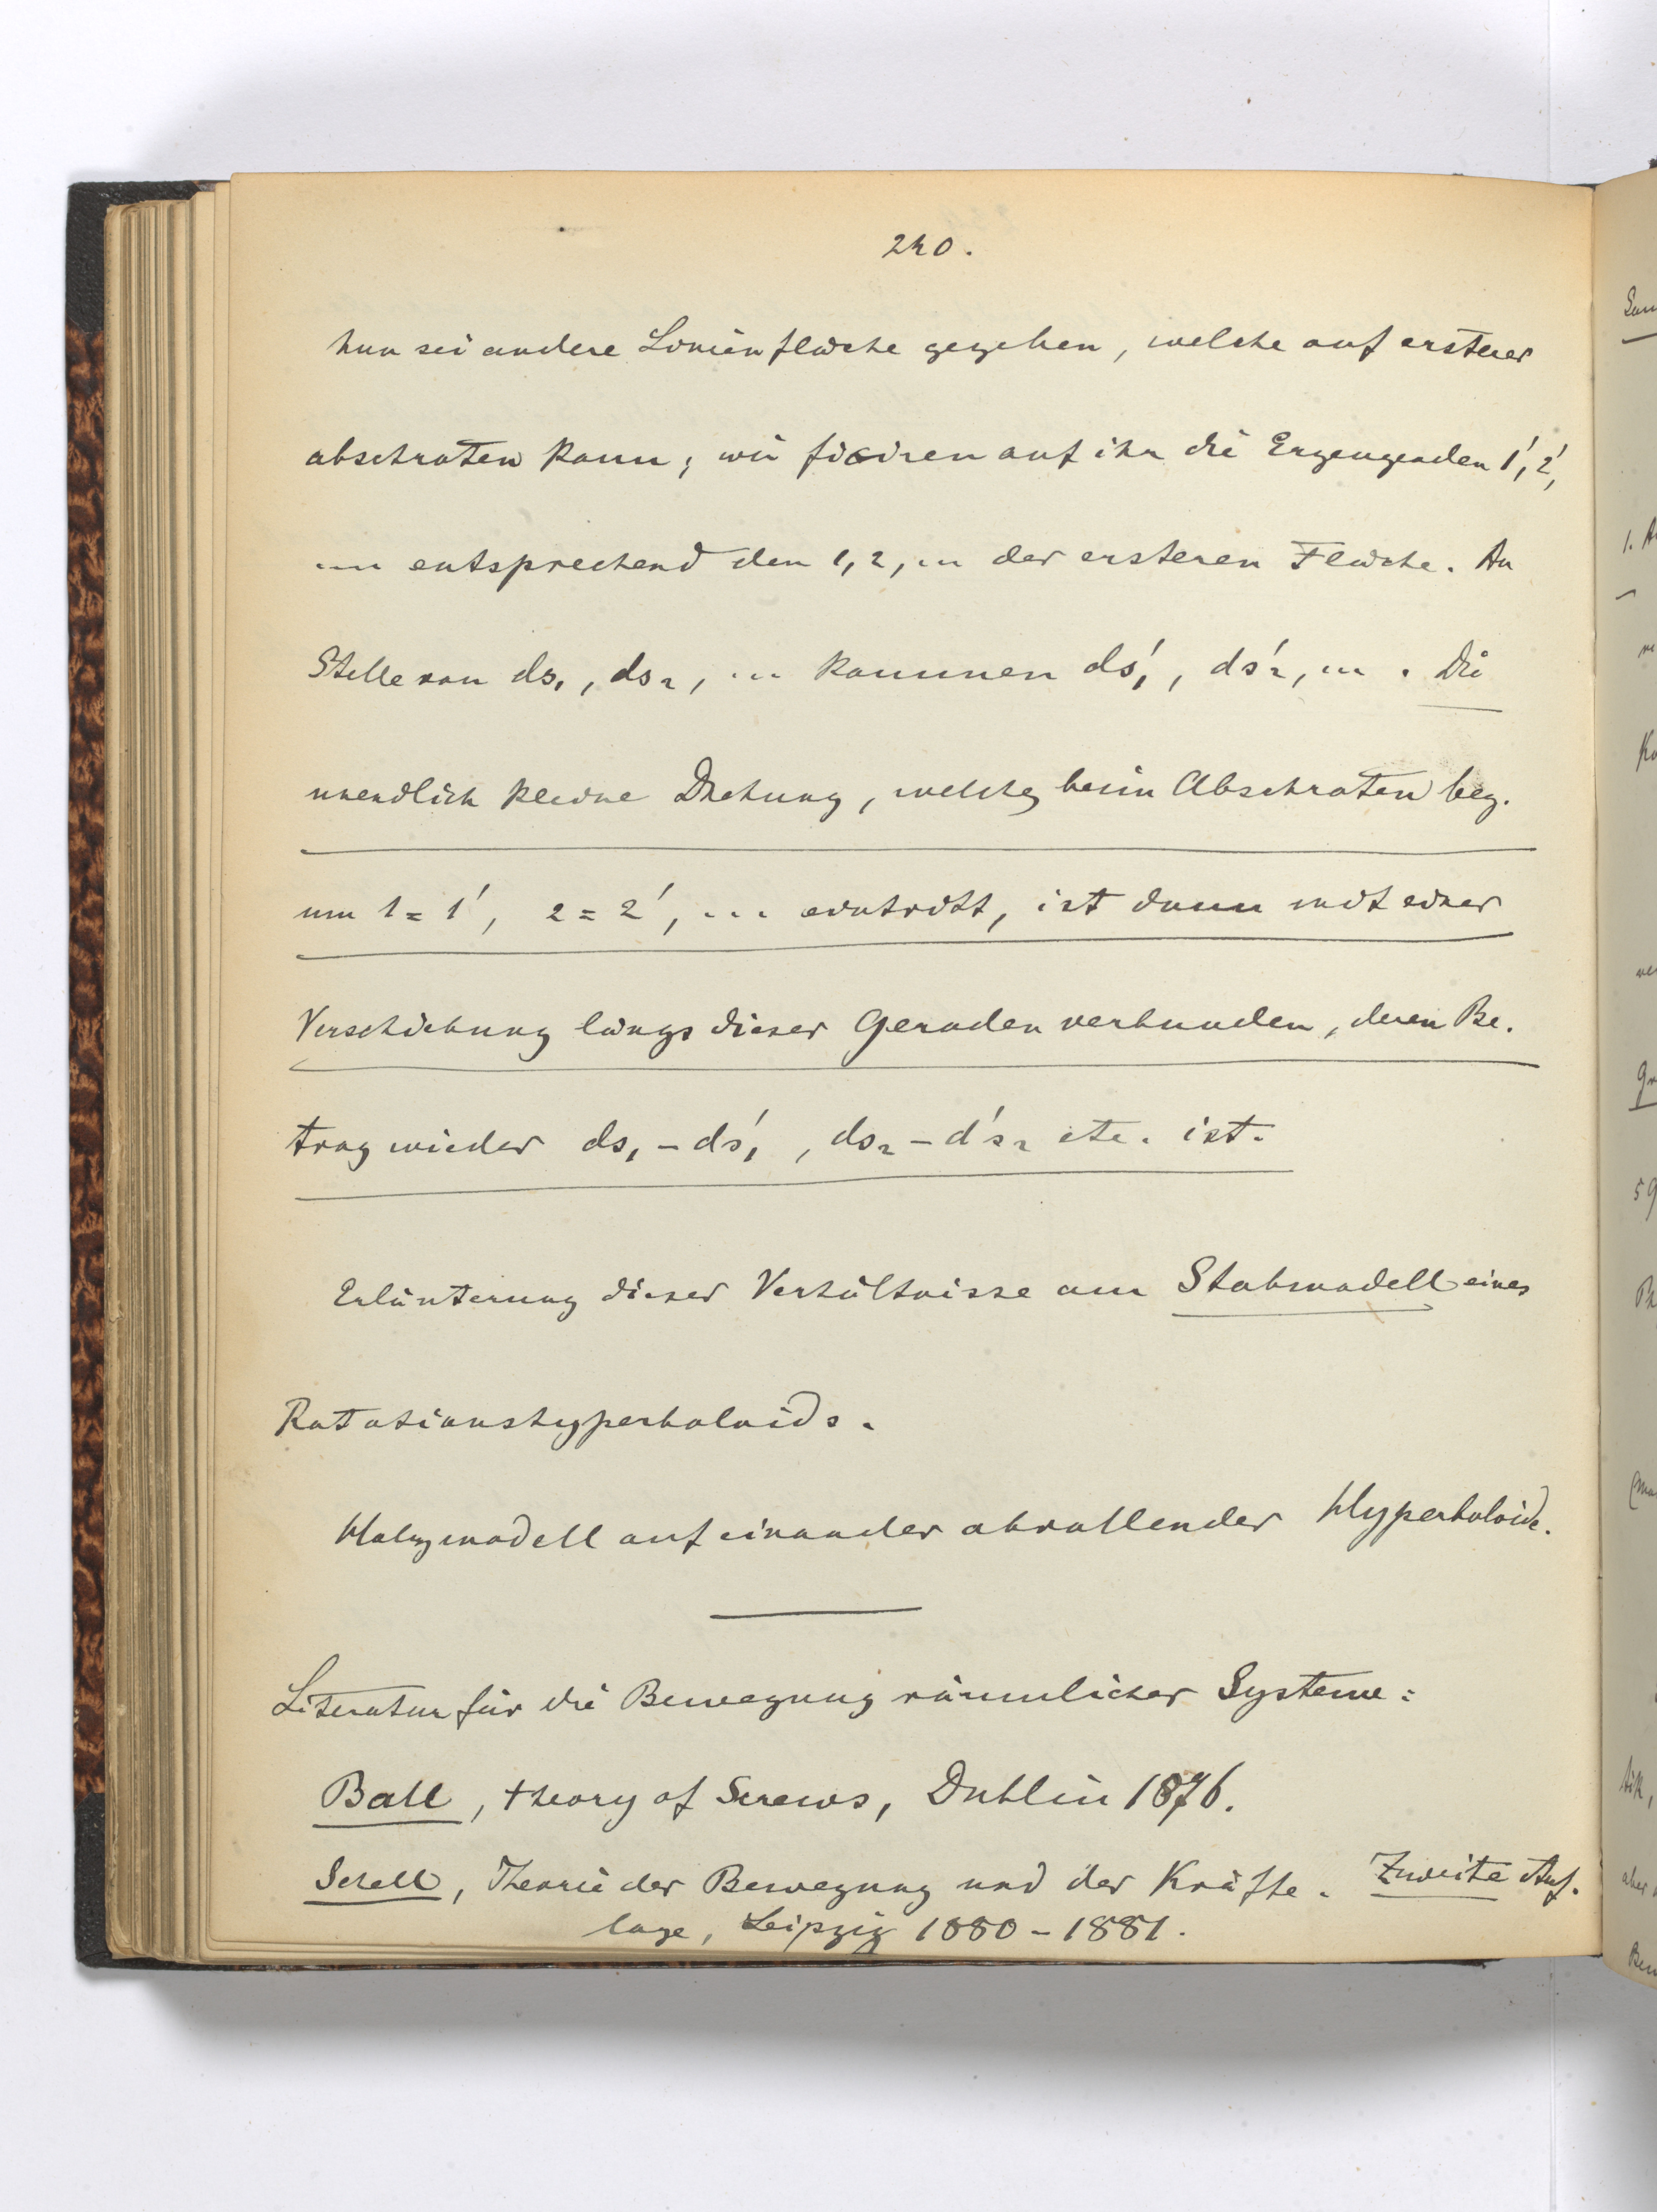 240.
Nun sei andere Linienfläche gegeben, welche auf ersterer
abschroten kann; wir fixiren auf ihr die Erzeugenden 1', 2',
... entsprechend den 1, 2, ... der ersteren Fläche. An
Stelle von ds₁, ds₂, ... kommen ds'₁, ds'₂, ... . Die
unendlich kleine Drehung, welche beim Abschroten bez.
um 1 = 1', 2 = 2', ... eintritt, ist dann mit einer
Verschiebung längs dieser Geraden verbunden, deren Be-
trag wieder ds₁ - ds'₁, ds₂ - ds'₂ etc. ist.
Erläuterung dieser Verhältnisse am Stabmodell eines
Rotationshyperboloids.
Holzmodell auf einander abrollender Hyperboloide.
Literatur für die Bewegung räumlicher Systeme:
Ball, theory of Screws, Dublin 1876.
Schell, Theorie der Bewegung und der Kräfte. Zweite Auf-
lage, Leipzig 1880 - 1881.